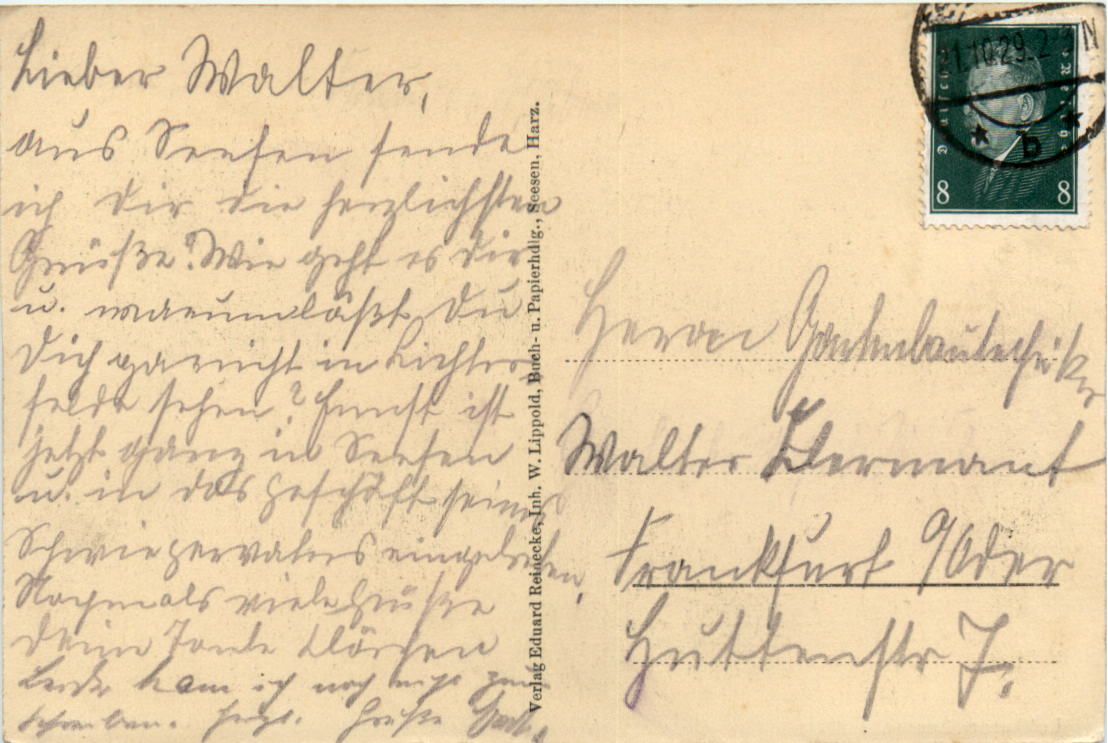 Lieber Walter,
aus Seesen sende
ich Dir die herzlichsten
Grüße! Wie geht es Dir
u. warum läßt Du
Dich garnicht in Lichter
felde sehen? Ernst ist
jetzt ganz in Seesen
u. in das Geschäft seines
Schwiegervaters eingetreten,
Nochmals viele Grüße
Deine Tante Klärchen
Leider kam ich noch nicht zum
Schreiben. Herzl. Grüße
Verlag Eduard Reinecke, Inh. W. Lippold, Buch- u. Papierhdlg., Seesen, Harz.
1.10.29.2-3 N
b
Deutsches Reich
8 8
Herrn Gartenbautechniker
Walter
Frankfurt a/Oder
Huttenstr 7.